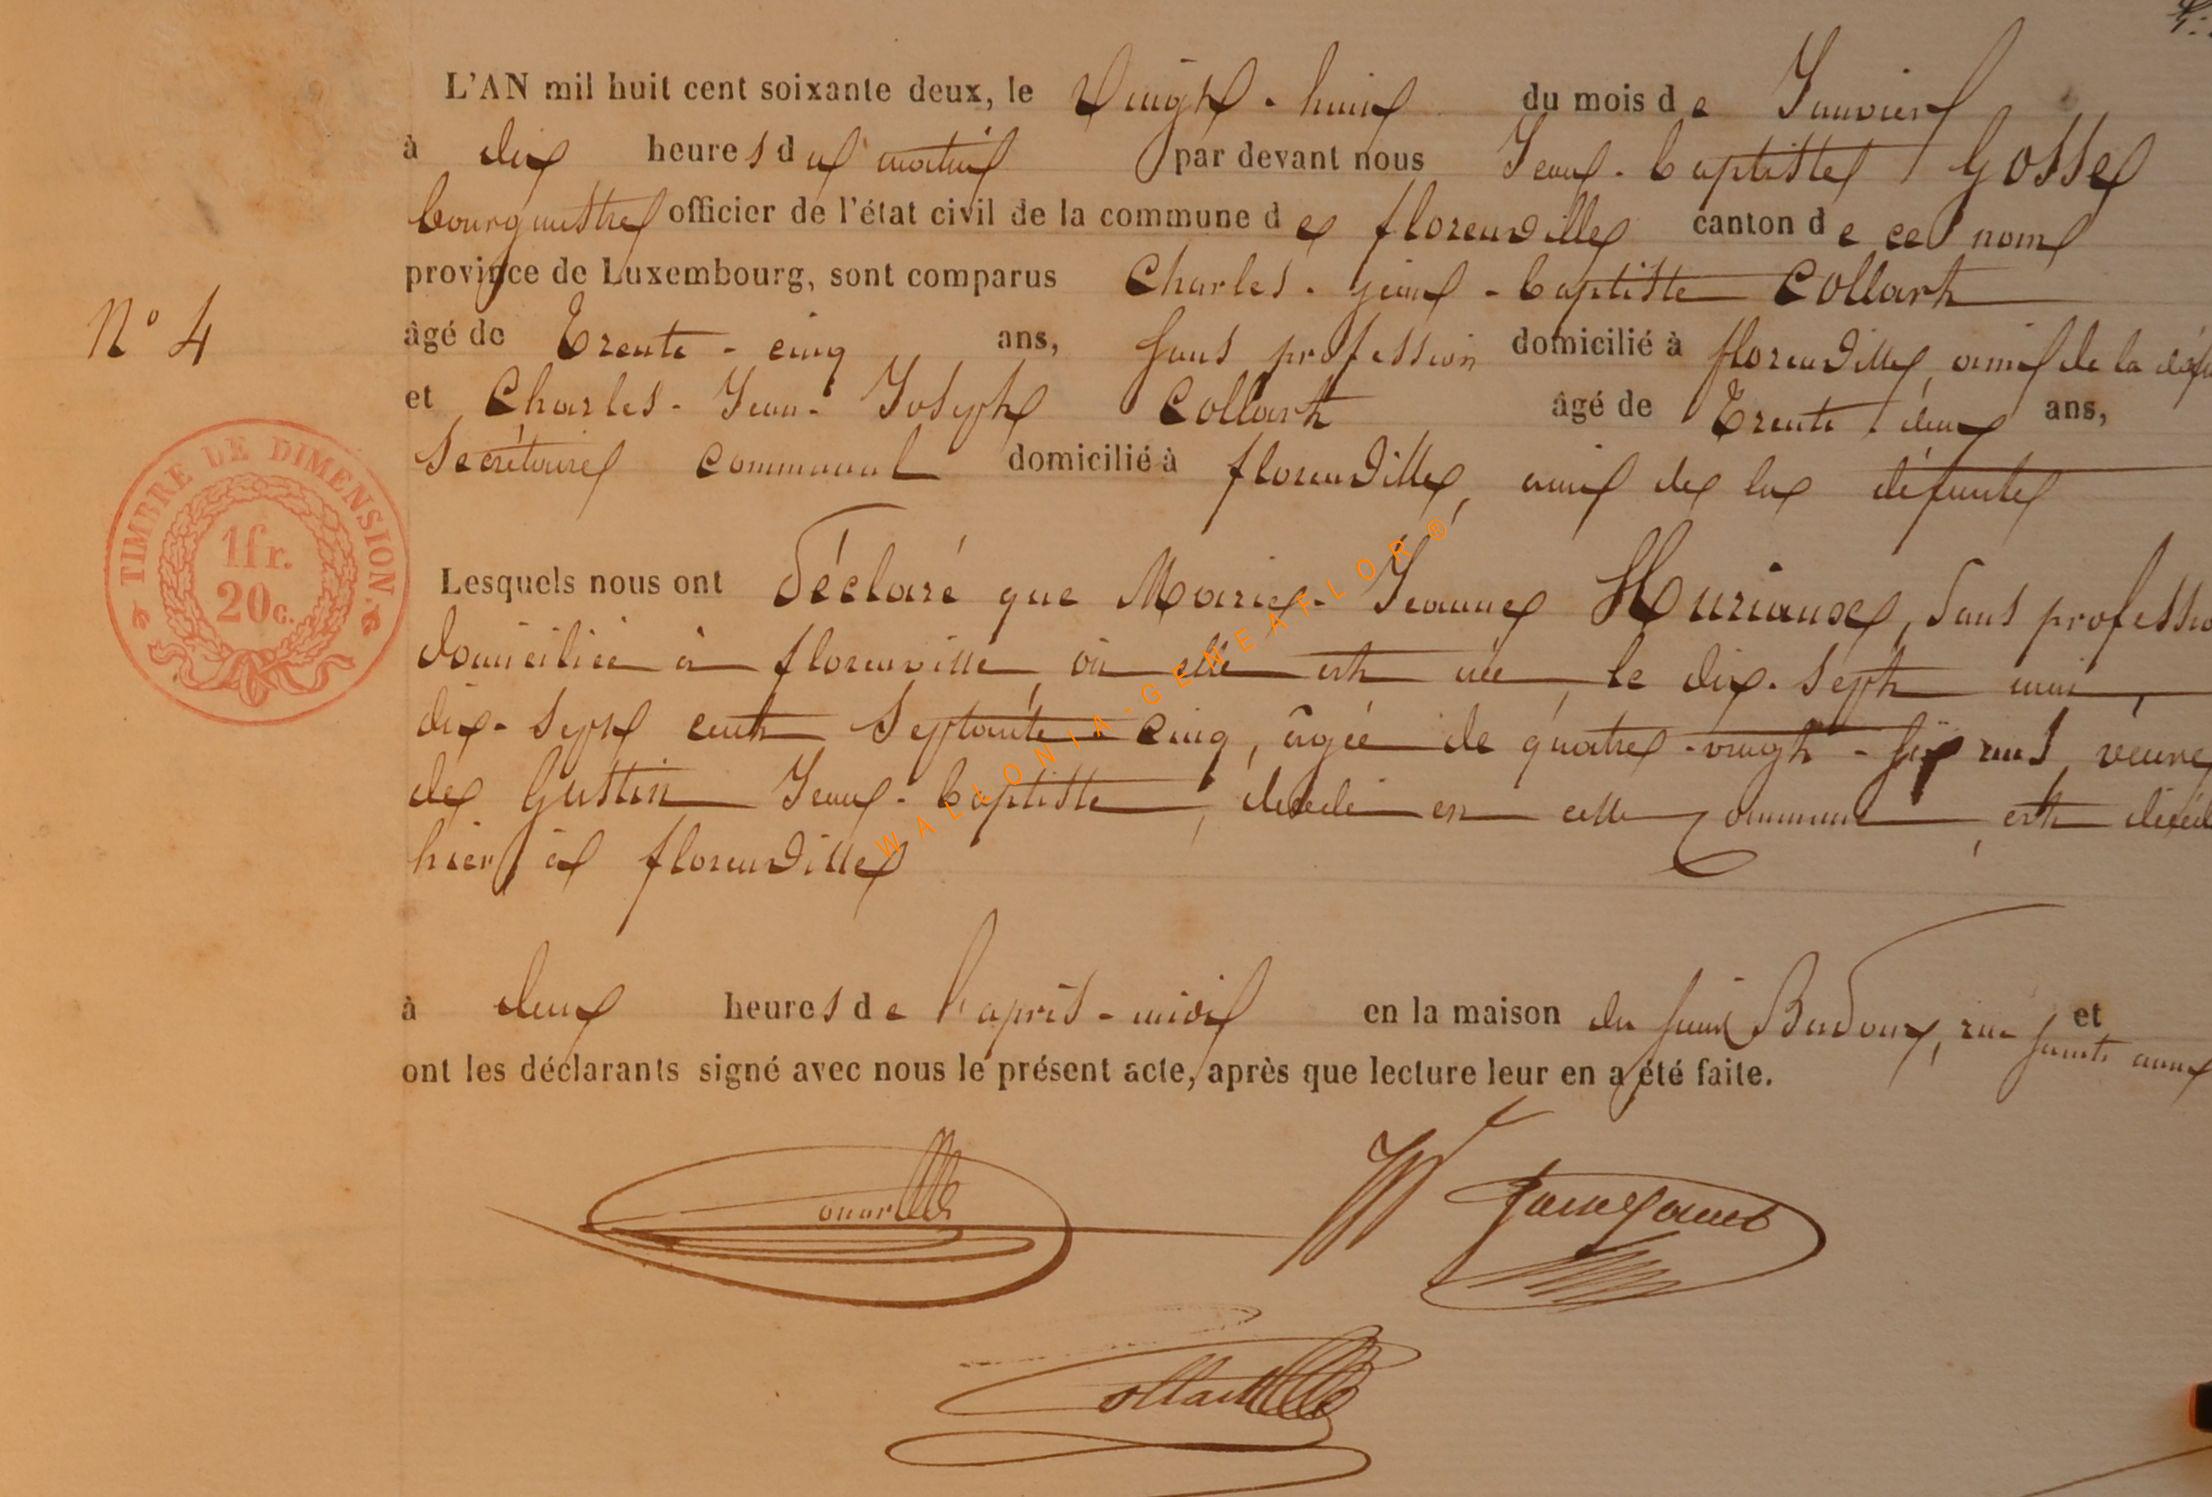 L'AN mil huit cent soixante deux, le Vingt-huit du mois de Janvier
à dix heures du matin par devant nous Jean-baptiste Gosse
bourgmestre officier de l'état civil de la commune de florenville canton de ce nom
province de Luxembourg, sont comparus Charles-jean-baptiste Collart
N° 4
âgé de Trente-cinq ans, sans profession domicilié à florenville, ami de la défu
et Charles-Jean-Joseph Collart âgé de Trente deux ans,
Secrétaire communal domicilié à florenville, ami de la défunte
TIMBRE DE DIMENSION
1fr.
20c.
Lesquels nous ont Déclaré que Marie-Jeanne Huriaux, sans professio
domiciliée à florenville où elle est née, le dix-sept mai,
dix-sept cent septante-cinq, âgée de quatre-vingt-six ans, veuve
de Gustin Jean-baptiste, décédé en cette commune, est décéd
hier à florenville
à deux heures de l'après-midi en la maison du sieur Budoux, rue sainte anne et
ont les déclarants signé avec nous le présent acte, après que lecture leur en a été faite.
Collart
WALLONIA-GENEAFLOR®